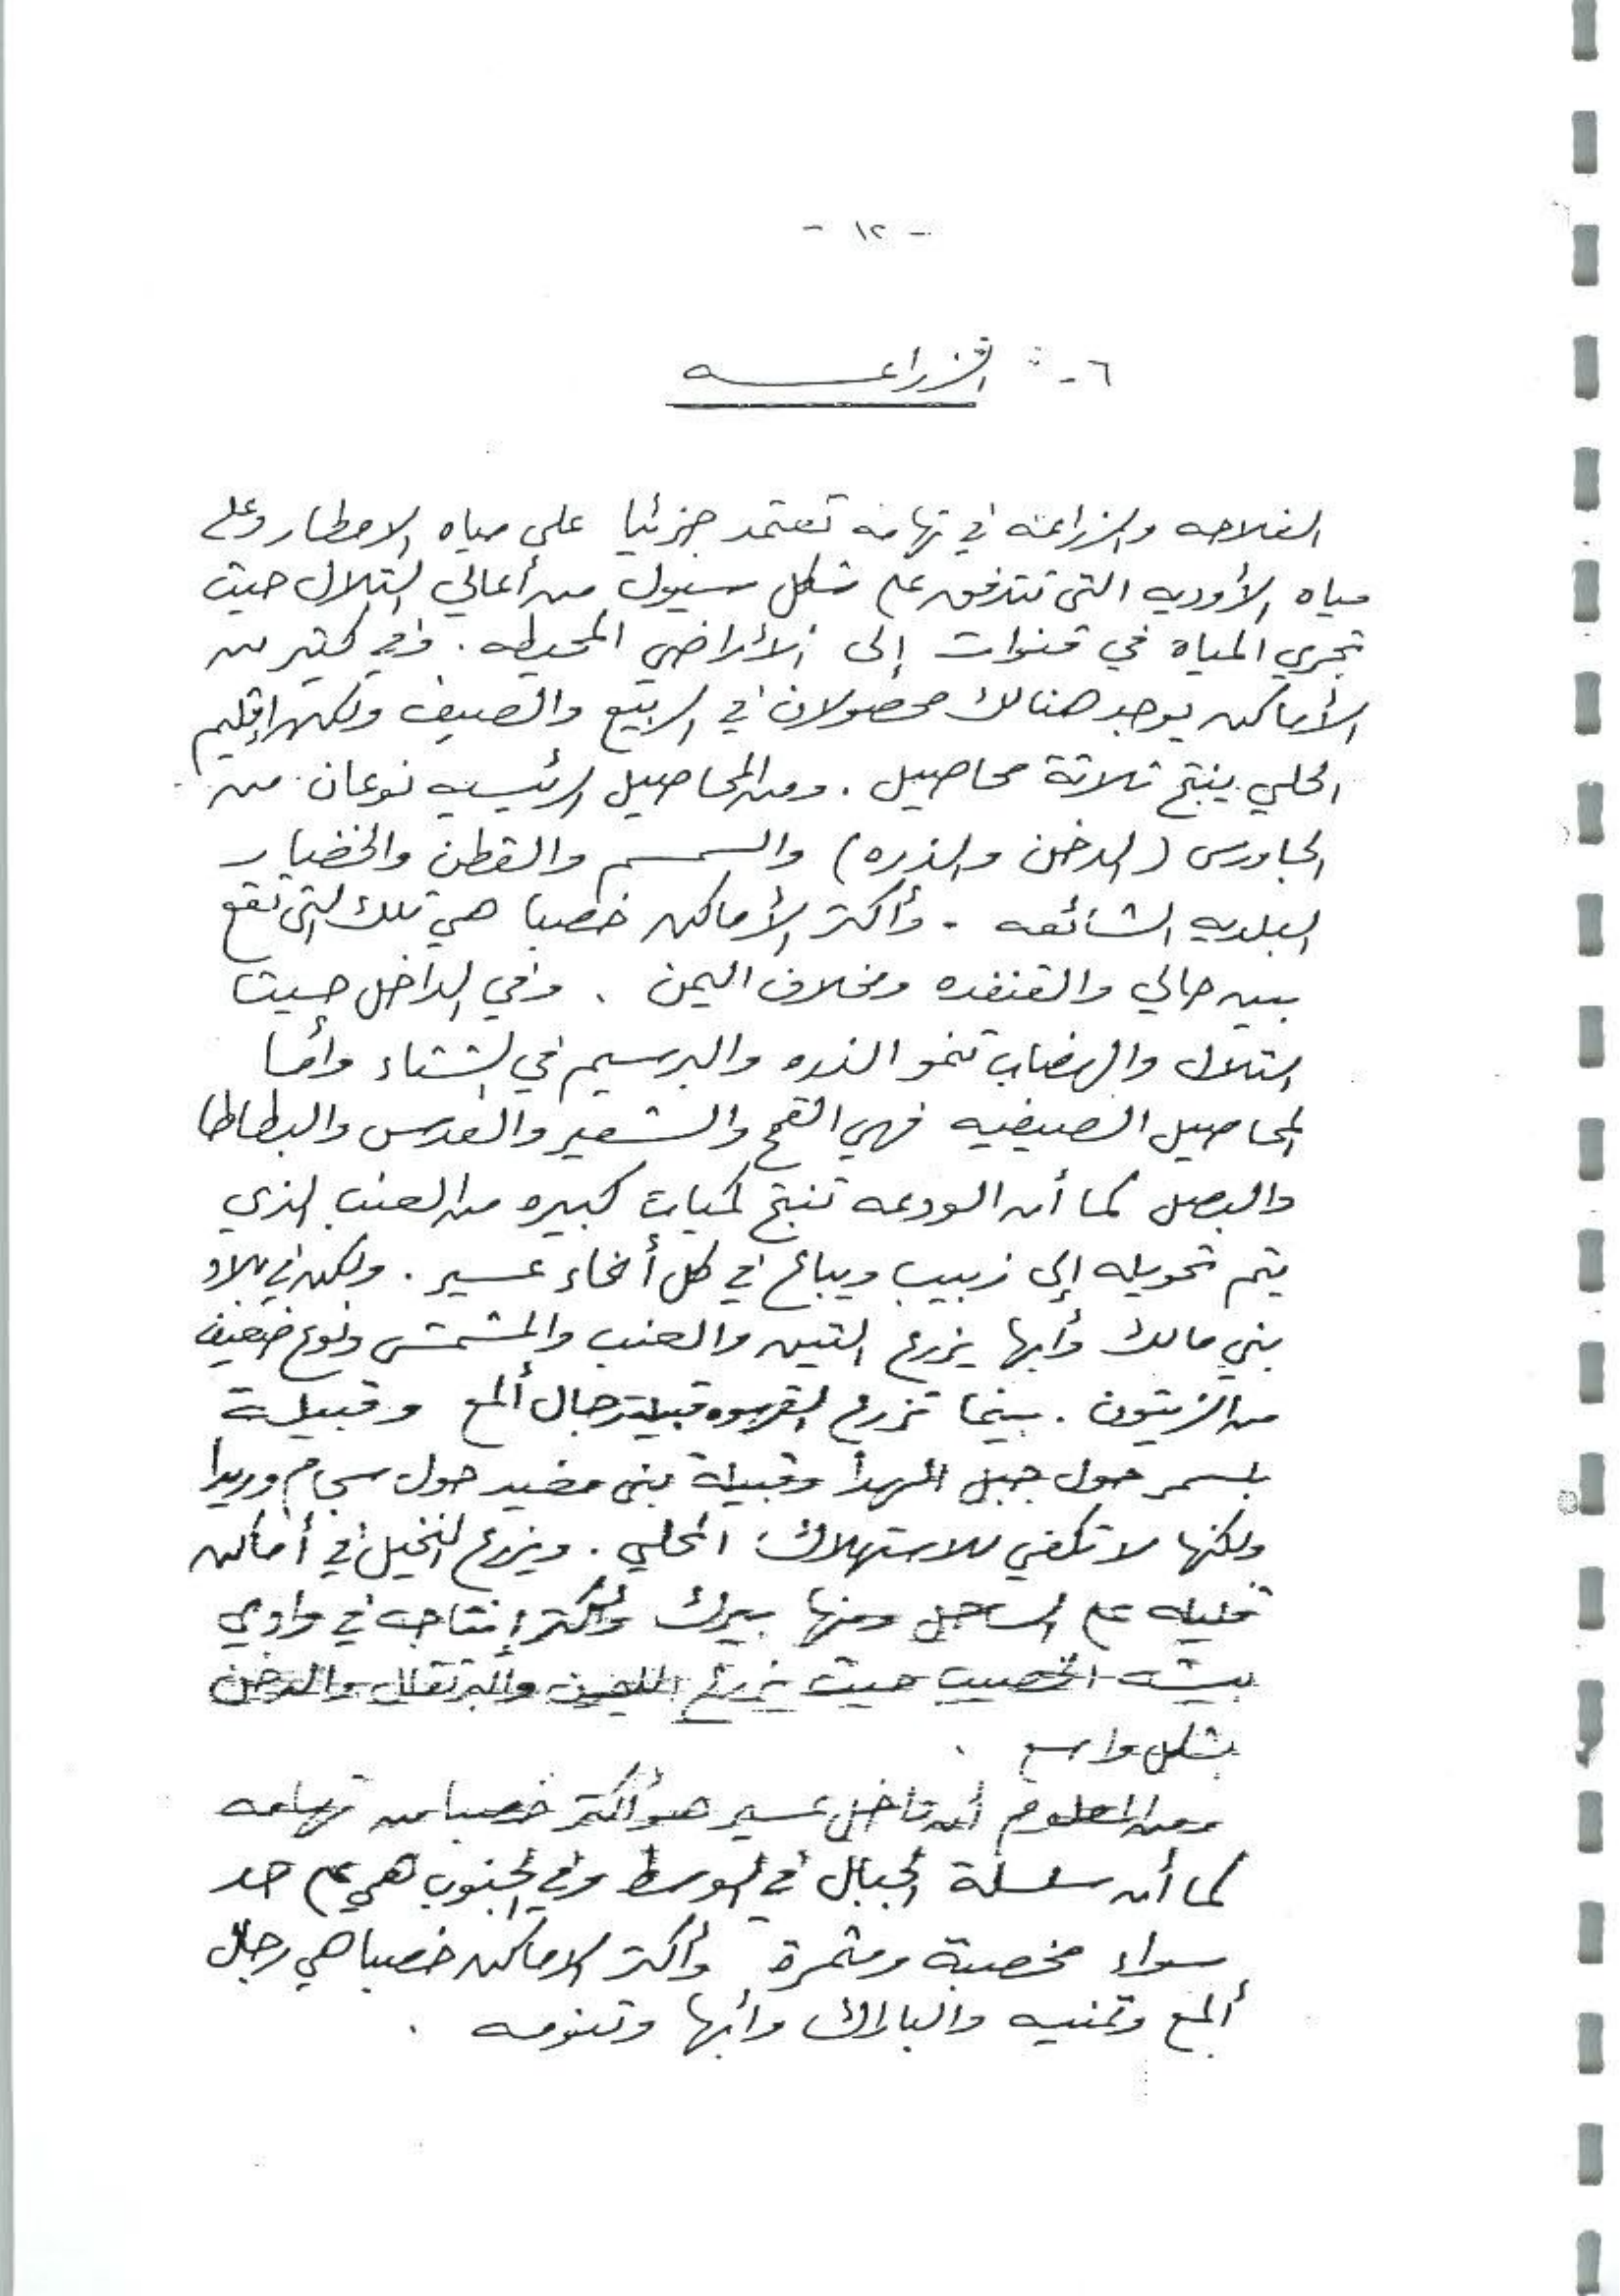 - ١٢ -
٦ - : الزراعـــه
الفلاحه والزراعة في تهامة تعتمد جزئيا على مياه الامطار وعلى
مياه الأوديه التى تتدفق على شكل سيول من أعالي التلال حيث
تجري المياه في قنوات إلى الأراضي المحيطه . وفي كثير من
الأماكن يوجد هنالك محصولان في الربيع والصيف ولكن إقليم
الحلي ينتج ثلاثة محاصيل . ومن المحاصيل الرئيسيه نوعان من
الجاورس (الدخن والذره) والسمسم والقطن والخضار
البلديه الشائعه . وأكثر الأماكن خصبا هي تلك التى تقع
بين حالي والقنفده ومخلاف اليمن . وفي الداخل حيث
التلال والهضاب تنمو الذره والبرسيم في الشتاء وأما
المحاصيل الصيفيه فهي القمح والشعير والعدس والبطاطا
والبصل كما أن الودعه تنتج كميات كبيره من العنب الذي
يتم تحويله إلى زبيب ويباع في كل أنحاء عسير . ولكن في بلاد
بني مالك وأبها يزرع التين والعنب والمشمش ونوع ضعيف
من الزيتون . بينما تزرع القهوه قبيلة رجال ألمع وقبيلة
بلسمر حول جبل الهدا وقبيلة بنى مغيد حول سجام وريدا
ولكنها لا تكفي للاستهلاك المحلي . ويزرع النخيل في أماكن
قليله على الساحل ومنها بيرك وأكثر إنتاجه في وادي
بيشه الخصيب حيث يزرع الليمون والبرتقال والدخن
بشكل واسع .
ومن المعلوم أن داخل عسير هو أكثر خصبا من تهامه
كما أن سلسلة الجبال في الوسط وفي الجنوب هي على حد
سواء مخصبة ومثمرة وأكثر الاماكن خصبا هي رجال
ألمع وتمنيه والبارك وأبها وتنومه .